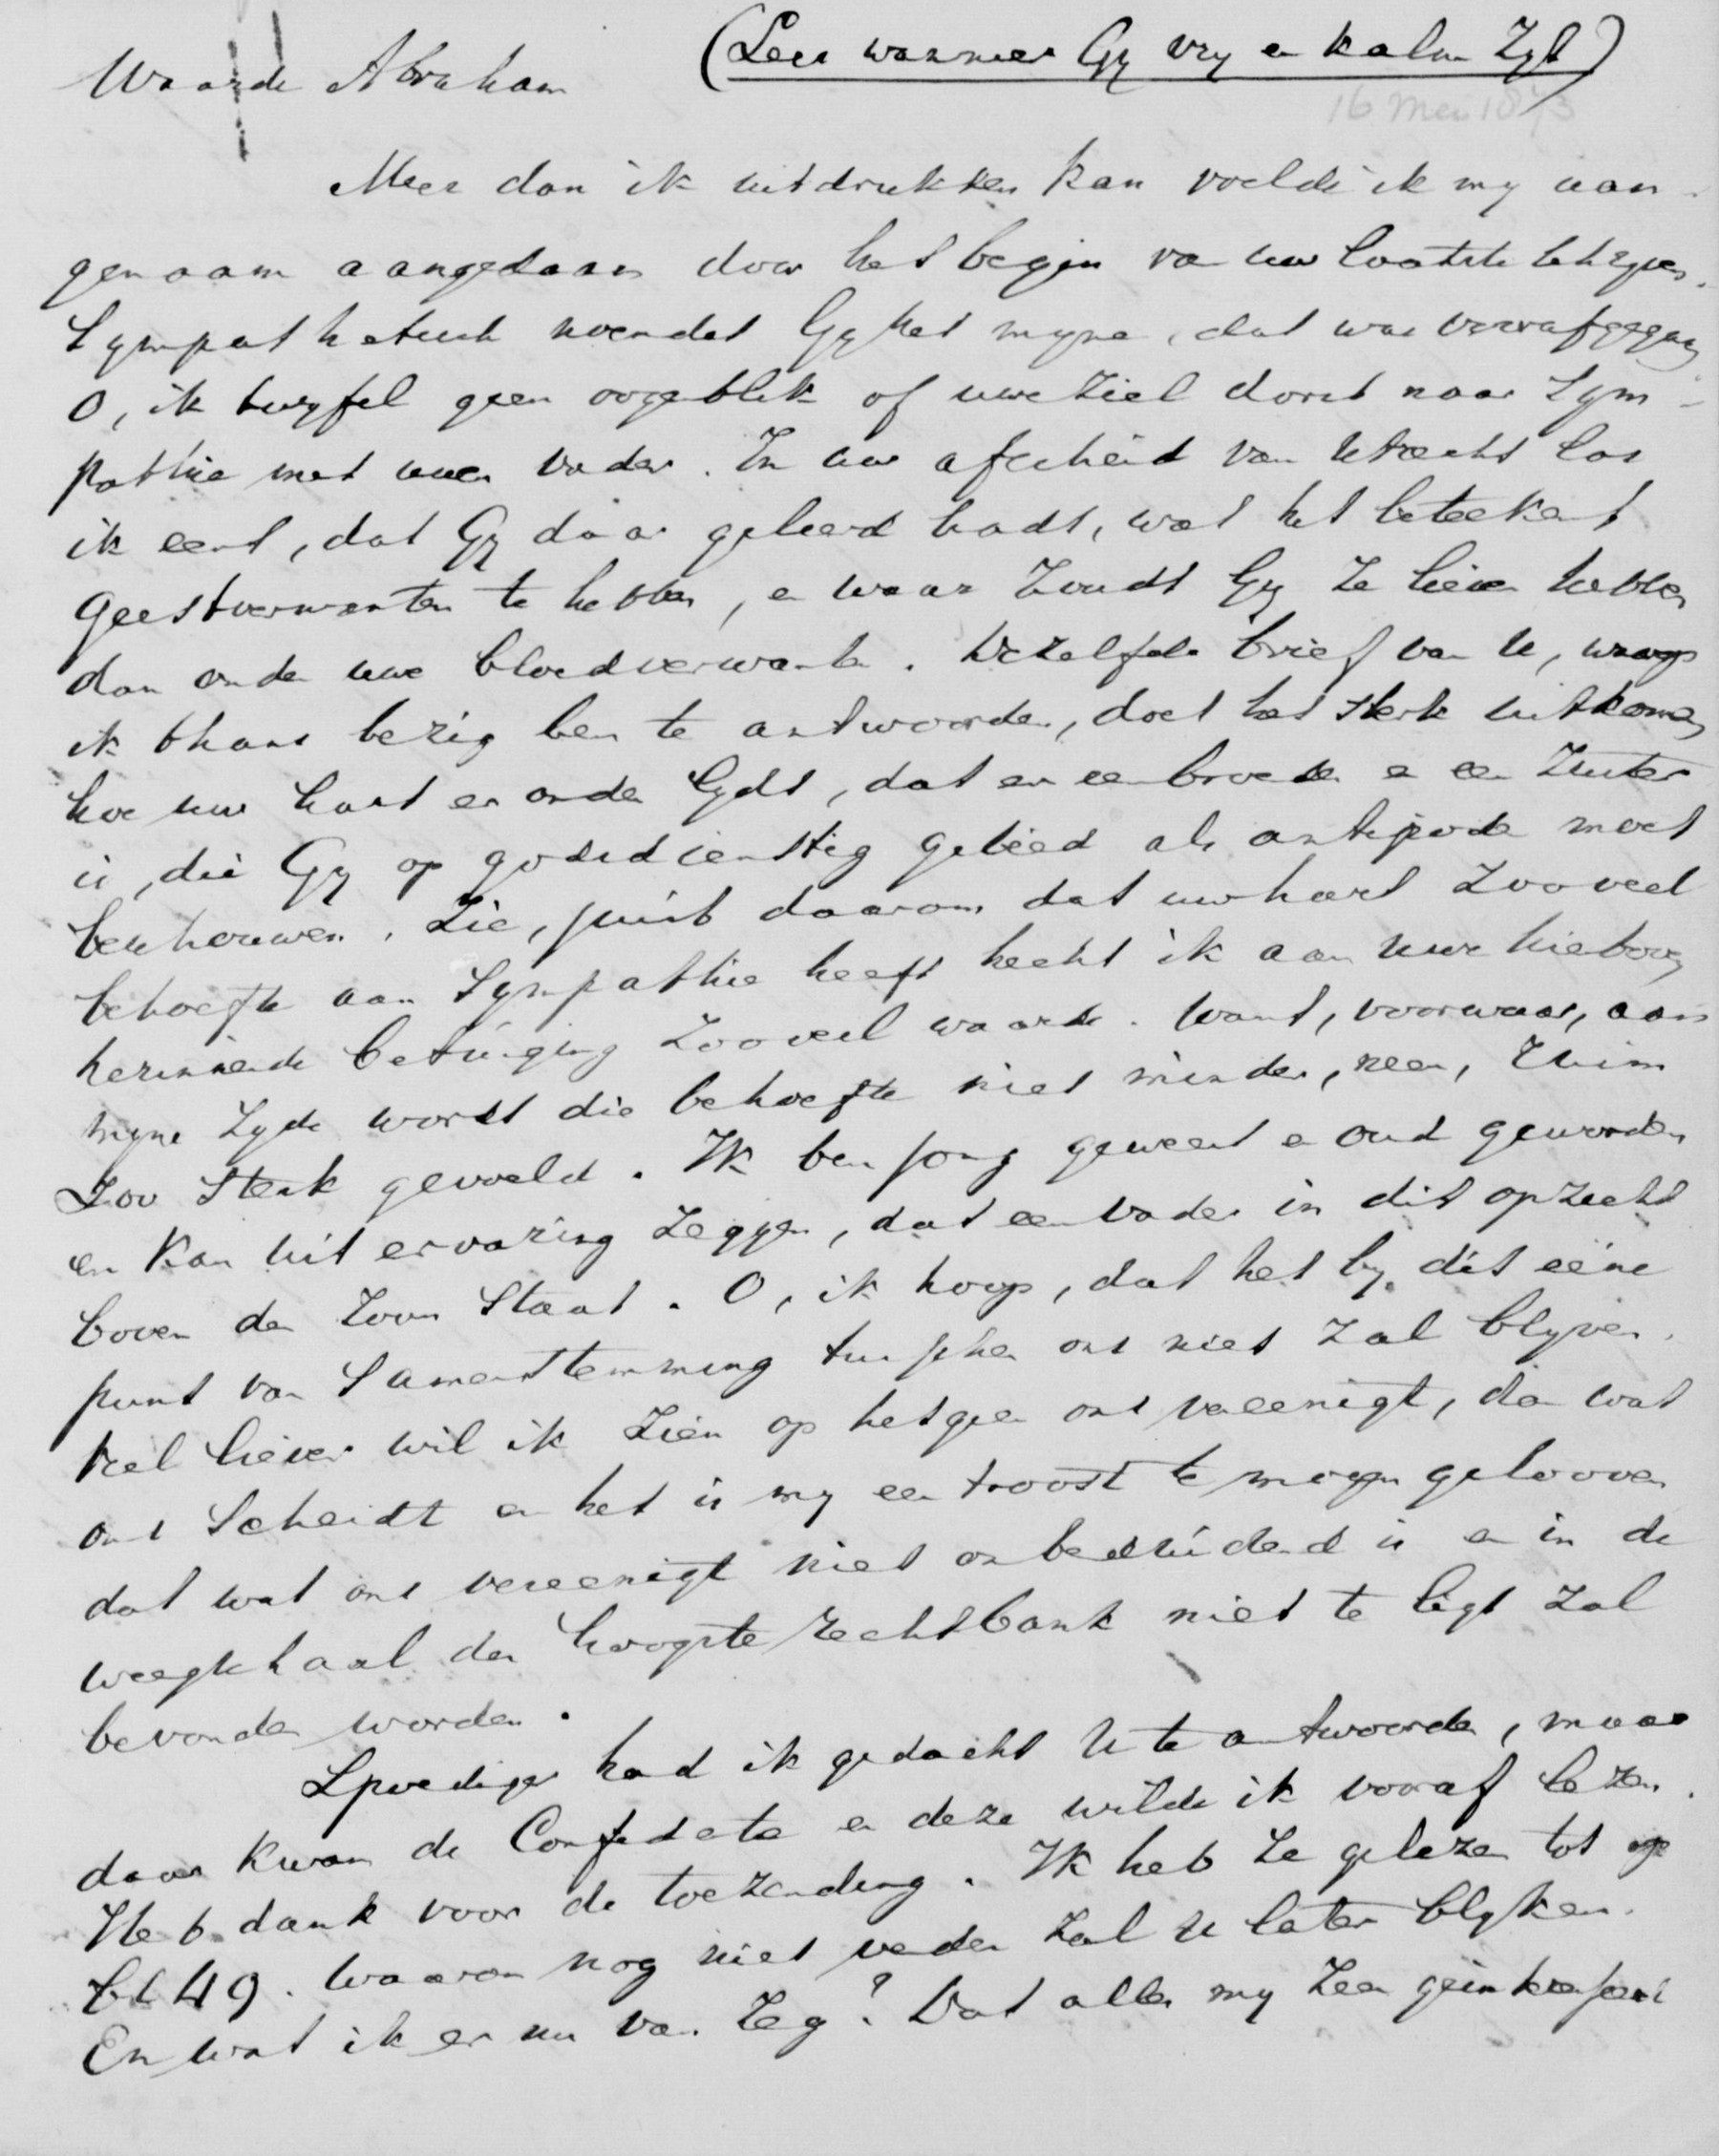 (Lees wanneer Gy vry en kalm Zyt)
Waarde Abraham
16 Mei 1873
Meer dan ik uitdrukken kan voelde ik my aan-
genaam aangedaan door het begin van uw laatste schryven.
Sympathetisch noemdet Gy het myne, dat was voorafgegaan
O, ik twyfel geen oogenblik of uwe Ziel dorst naar Sym-
pathie met uwen Vader. In uw afscheid van Utrecht las
ik eens, dat Gy daar geleerd hadt, wat het beteekent
geestverwanten te hebben, en waar Zoudt Gy Ze liever hebben
dan onder uwe bloedverwanten. Dezelfde brief van U, waarop
ik thans bezig ben te antwoorden, doet het sterk uitkomen
hoe uw hart er onder lydt, dat er een broeder en een Zuster
is, die Gy op godsdienstig gebied als antipode moet
beschouwen. Zie, juist daarom dat uw hart Zooveel
behoefte aan Sympathie heeft hecht ik aan uwe hierboven
herinnerde betuiging Zooveel waarde. Want, voorwaar, aan
myne Zyde wordt die behoefte niet minder, neen, ruim
Zoo sterk gevoeld. Ik ben jong geweest en oud geworden
en kan uit ervaring Zeggen, dat een Vader in dit opzicht
boven den Zoon Staat. O, ik hoop, dat het by dit ééne
punt van Samenstemming tusschen ons niet Zal blyven.
Veel liever wil ik Zien op hetgeen ons vereenigt, dan wat
ons Scheidt en het is my een troost te mogen gelooven
dat wat ons vereenigt niet onbeduidend is en in de
weegschaal der hoogste rechtsbank niet te ligt Zal
bevonden worden.
Spoediger had ik gedacht U te antwoorden, maar
daar kwam de Confidentie en deze wilde ik vooraf lezen.
Heb dank voor de toezending. Ik heb Ze gelezen tot op
bl 49. Waarom nog niet verder Zal U later blyken.
En wat ik er nu van Zeg? Dat alles my Zeer geïnteresseerd